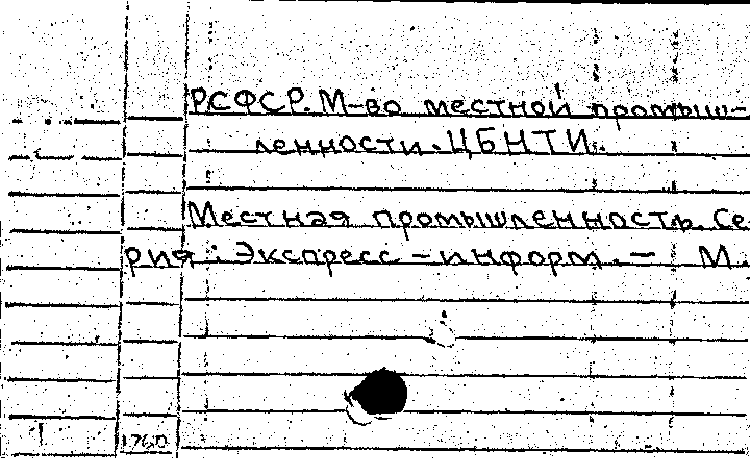 РСФСР. М-во местной промыш-
ленности. ЦБНТИ.
Местная промышленность. Се
рия: Экспресс-информ. - М.